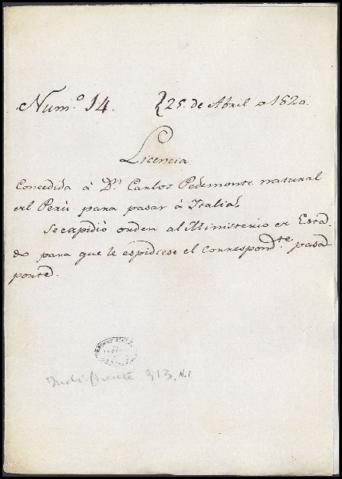 Num.º 14. 25. de Abril de 1820.
Licencia
Concedida á Dn. Carlos Pedemonte natural
del Perú para pasar á Italia.
Se expidió orden al Ministerio de Esta
do para que le espidiese el correspondte. pasa
porte.
Indiferente 313, N.1